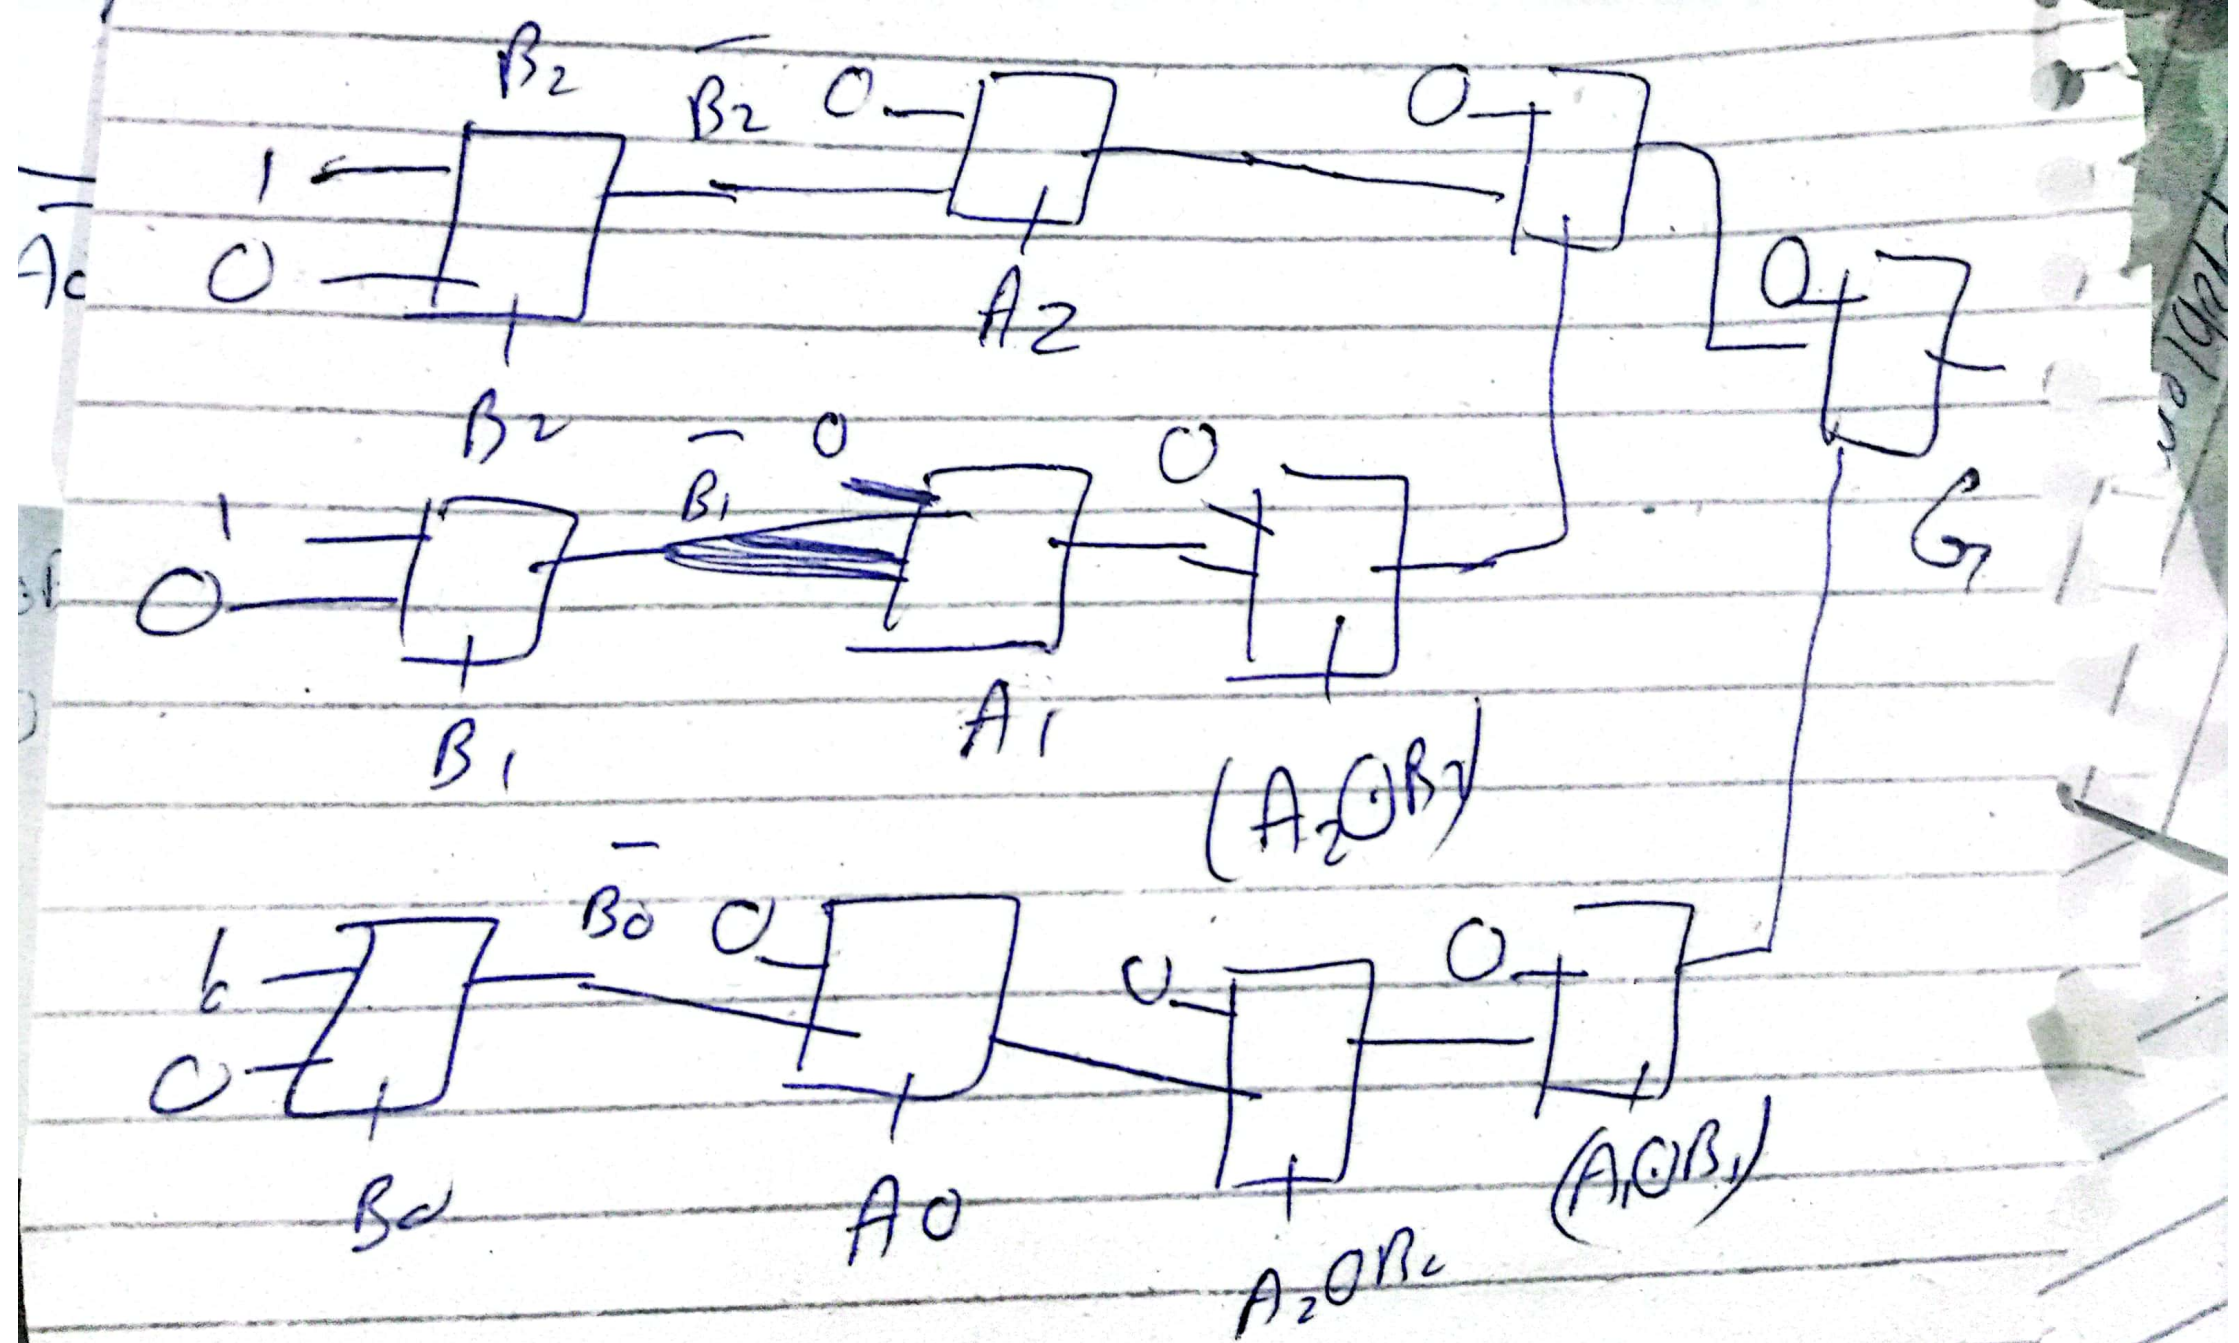 B2
B̅2 0 0
1
0
A2
0
B2
B̅1 0 0
1
0
G
B1
A1
(A2⊙B2)
B̅0 0
0
0
0
B0
A0
(A1⊙B1)
A2⊙B2